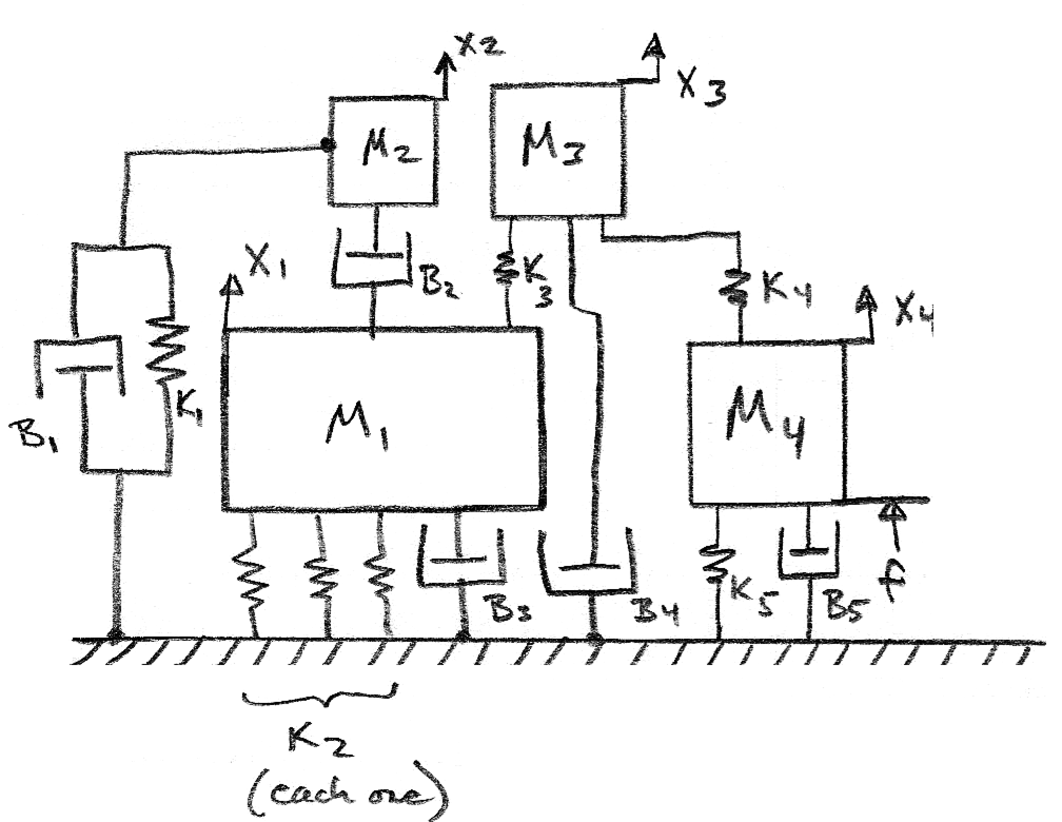 X2
X3
M2
M3
X1
B2
K3
K4
X4
B1
K1
M1
M4
B3
B4
K5
B5
f
K2
(each one)